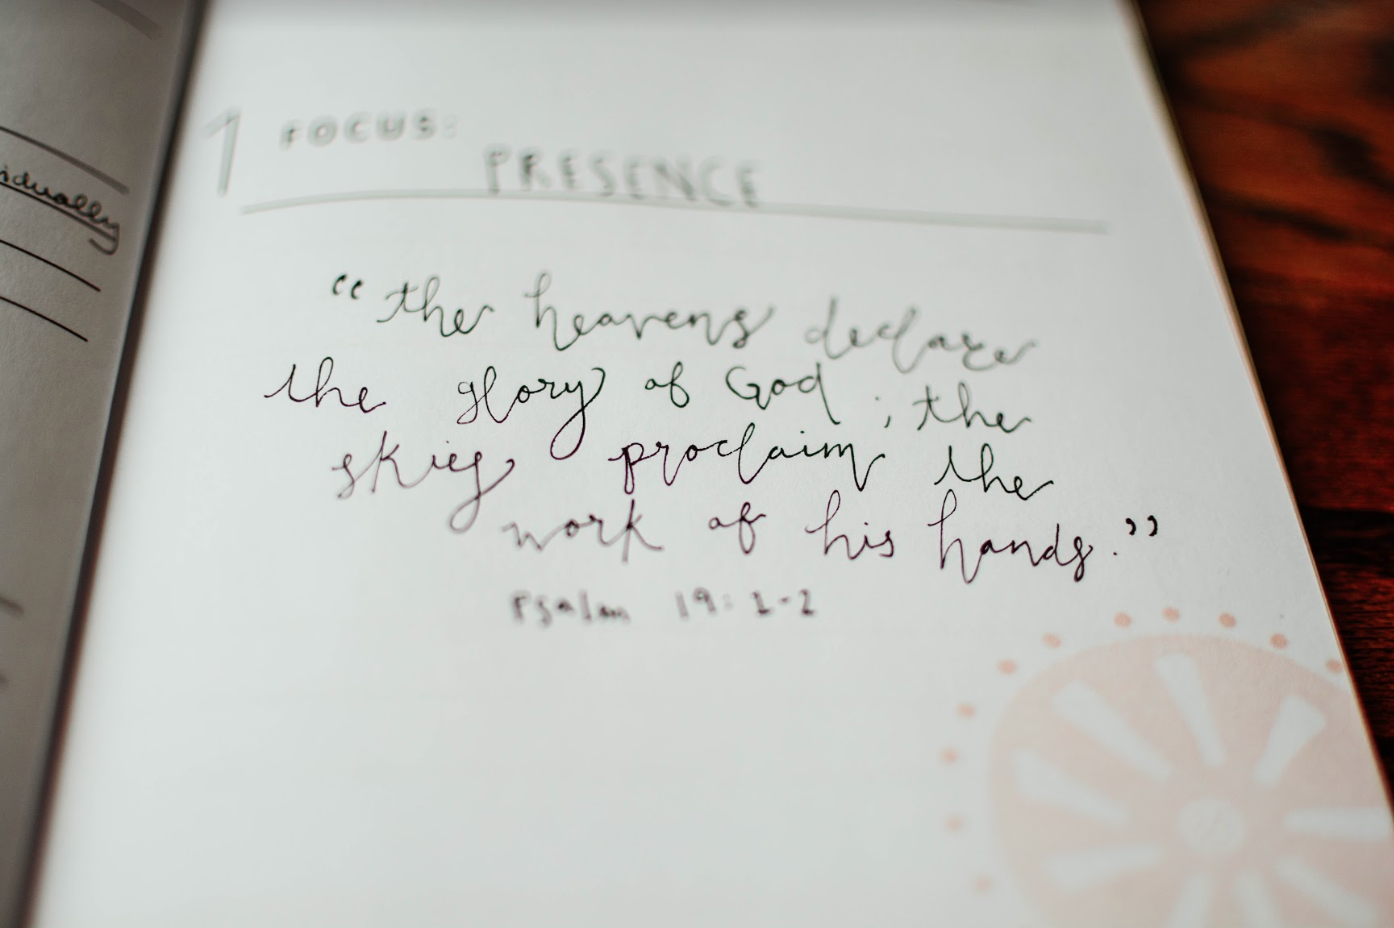 1 FOCUS:
PRESENCE
“the heavens declare
the glory of God; the
skies proclaim the
work of his hands.”
Psalm 19:1-2